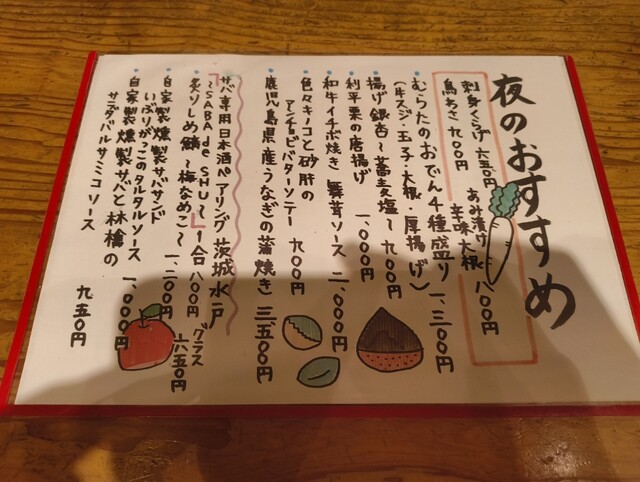 夜のおすすめ
刺身くらげ 六五〇円
鳥わさ 九〇〇円
あみ漬け
辛味大根 八〇〇円
・むらたのおでん千種盛り 一、三〇〇円
(牛スジ・玉子・大根・厚揚げ)
揚げ銀杏〜藻塩〜 九〇〇円
利平栗の唐揚げ 一、〇〇〇円
和牛イチボ焼き 舞茸ソース 二、〇〇〇円
色々キノコと砂肝の
アンチョビバターソテー 九〇〇円
・鹿児島県産うなぎの蒲焼き 三、五〇〇円
サバ専用日本酒ペアリング 茨城水戸
「〜SABA de SHU〜」 一合 八〇〇円 グラス 六五〇円
・炙りしめ鯖〜梅なめこ〜 一、二〇〇円
・自家製燻製サバサンド
いぶりがっこのタルタルソース 一、〇〇〇円
・自家製燻製サバと林檎の
サラダバルサミコソース 九五〇円